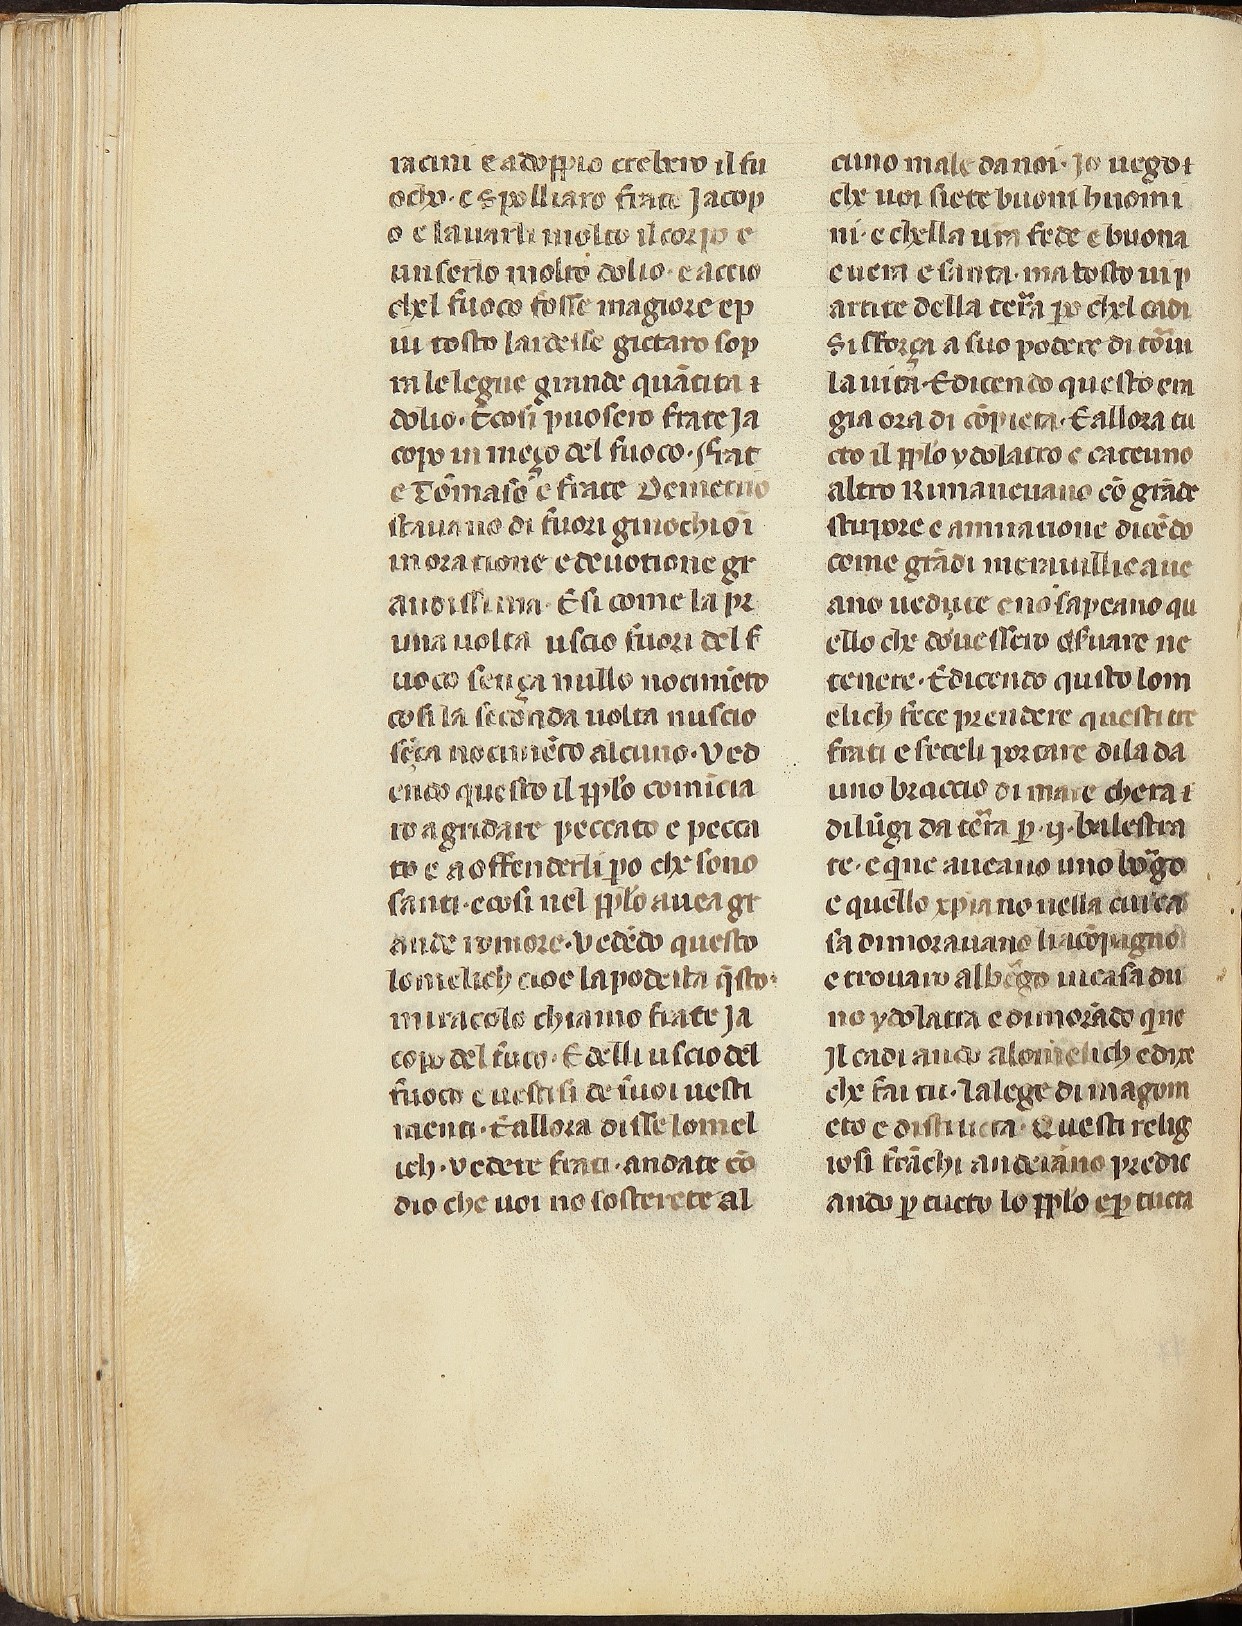 racini e adoppio crebero il fu
oco· e spolliaro frate Jacop
o e lavarli molto il corpo e
unserlo molto dolio· e accio
chel fuoco fosse magiore e p
iu tosto lardesse gictaro sop
ra le legne grande quãtita ı
dolio· E cosi puosero frate Ja
copo in meço del fuoco· frat
e Tõmaso e frate Demetrio
stavano di fuori ginochioı
in oratione e devotione gr
andissima· E si come la pr
una uolta uscio fuori del f
uoco sença nullo nocimẽto
cosi la secõnda uolta nuscio
sẽça nocimẽto alcuno· Ved
endo questo il pplo comıcia
ro a gridare peccato e pecca
to e a offenderli po che sono
santi· e cosi nel pplo auea gr
ande romore· Vedẽdo questo
lomelich cioe la podesta q̃sto·
miracolo chiamo frate Ja
copo del fuco· E delli uscio del
fuoco e uestisi de suoi uesti
menti· E allora disse lomel
ich· Vedete frati· andate cõ
dio che uoi no sosterete al
cuno male da noi· Jo uego ı
che uoi siete buoni huomi
ni· e chella ur̃a fede e buona
e uera e santa· ma tosto ui p
artite della ter̃a po chel cadi
Si sforça a suo podere di tõui
la uita· E dicendo questo era
gia ora di cõpieta· E allora tu
cto il pplo ydolatro e cateuno
altro Rimaneuano cõ grãde
stupore e amiratione dicẽdo
come grãdi merauillie aue
ano uedute e no sapeano qu
ello che douessero oseruare ne
tenere· E dicendo quisto lom
elich fece prendere questi tre
frati e feceli portare di la da
uno braccio di mare chera ı
di lũgi da ter̃a p· ij· balestra
te· e que aueano uno boȓgo
e quello xpiano nella cui ca
sa dimorauano li acõpagno
e trouaro albeȓgo in casa du
no ydolatra e dimorãdo que
Jl cadi ando a lomelich e dixe
che fai tu· La lege di magom
eto e distructa· Questi relig
iosi frãchi anderãno predic
ando p tucto lo pplo e p tucta